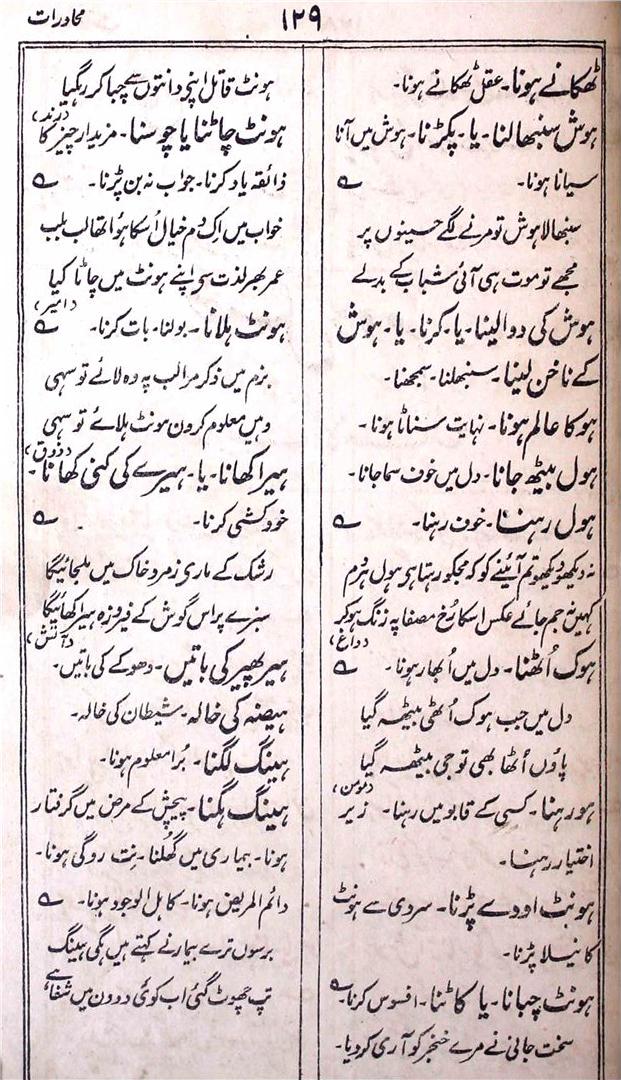 محاورات
۱۲۹
ٹھکانے ہونا۔ عقل ٹھکانے ہونا۔
ہوش سنبھالنا۔ یا۔ پکڑنا۔ ہوش میں آنا
سیانا ہونا۔ ؎
سنبھالا ہوش تو مرنے لگے حسینوں پر
مجھے تو موت ہی آئی شباب کے بدلے
ہوش کی دوا لینا۔ یا۔ کرنا۔ یا۔ ہوش
کے ناخن لینا۔ سنبھلنا۔ سمجھنا۔
ہو کا عالم ہونا۔ نہایت سناٹا ہونا۔
ہول بیٹھ جانا۔ دل میں خوف سما جانا۔
ہول رہنا۔ خوف رہنا۔ ؎
نہ دیکھو دیکھو تم آئینے کو کہ مجکو رہتا ہی ہول ہردم
کہین نہ جم جائے عکس اسکا رُخ مصفا پہ زنگ ہوکر
(داغ)
ہوک اُٹھنا۔ دل میں اُبھار ہونا۔ ؎
دل میں جب ہوک اُٹھی بیٹھ گیا
پاؤں اُٹھا بھی تو جی بیٹھ گیا
(مومن)
ہو رہنا۔ کسی کے قابو میں رہنا۔ زیر
اختیار رہنا۔
ہونٹ اودے پڑنا۔ سردی سے ہونٹ
کا نیلا پڑنا۔
ہونٹ چبانا۔ یا کاٹنا۔ افسوس کرنا۔ ؎
سخت جانی نے مرے خنجر کو آری کر دیا۔
ہونٹ قاتل اپنی دانتوں سے چبا کر رہگیا
(رند)
ہونٹ چاٹنا یا چوسنا۔ مزیدار چیز کا
ذائقہ یاد کرنا۔ جواب نہ بن پڑنا۔ ؎
خواب میں اِک دم خیال اُسکا ہوا تھا لب بلب
عمر بھر لذت سی اپنے ہونٹ میں چاٹا کیا
(اسیر)
ہونٹ ہلانا۔ بولنا۔ بات کرنا۔ ؎
بزم میں ذکر مرا لب پہ وہ لائے تو سہی
وہیں معلوم کرون ہونٹ ہلائے تو سہی
(ذوق)
ہیرا کھانا۔ یا۔ ہیرے کی کنی کھانا۔
خودکشی کرنا۔ ؎
رشک کے ماری زمرد خاک میں ملجائیگا
سبزے پر اس گوش کے فیروزہ ہیرا کھائیگا
(آتش)
ہیر پھیر کی باتیں۔ دھوکے کی باتیں۔
ہیضہ کی خالہ۔ شیطان کی خالہ۔
ہینگ لگنا۔ بُرا معلوم ہونا۔
ہینگ ہگنا۔ پیچش کے مرض میں گرفتار
ہونا۔ بیماری میں گھُلنا۔ نِت روگی ہونا۔
دائم المریض ہونا۔ کاہل الوجود ہونا۔ ؎
برسوں ترے بیمار نے کہتے ہیں ہگی ہینگ
تپ چھوٹ گئی اب کوئی دو دن میں شفا ہے